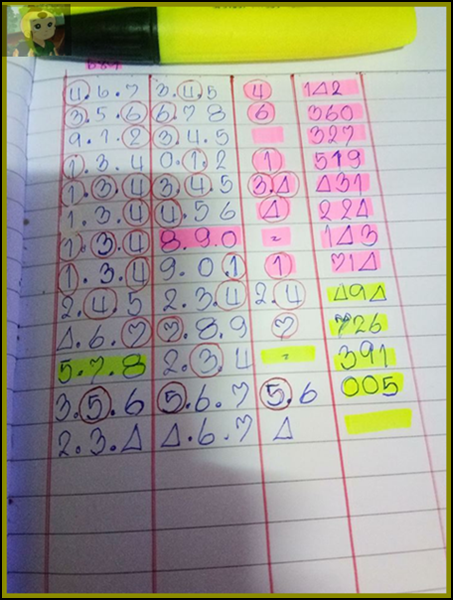 4.6.7 3.4.5 4 142
3.5.6 6.7 8 6 360
9.1.2 3.4.5 327
1.3.4 0.1.2 1 519
1.3.4 3.4.5 3.4 431
1.3.4 4.56 4 224
1.3.4 8.9.0 = 143
1.3.4 9.01 1 714
2.4.5 2.3.4 2.4 494
4.6.7 7.8.9 7 726
5.7.8 2.3.4 = 391
3.5.6 5.6.7 5.6 005
2.3.4 4.6.7 4